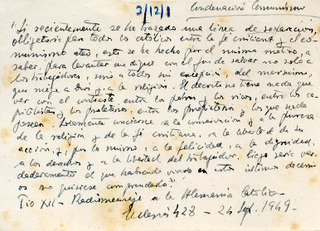 3/12/1
Condenación Comunismo
"Si recientemente se ha trazado una línea de separación,
obligatoria para todos los católicos entre la fe cristiana y el co-
munismo ateo, esto se ha hecho por el mismo motivo, a
saber, para levantar un dique con el fin de salvar no solo a
los trabajadores, sino a todos sin excepción, del marxismo,
que niega a Dios y a la religión. El decreto no tiene nada que
ver con el contraste entre los pobres y los ricos, entre los ca-
pitalistas y los proletarios, entre los propietarios y los que nada
poseen. Solamente concierne a la conservación y a la pureza
de la religión y de la fe cristiana, a la libertad de su
acción, y, por lo mismo, a la felicidad, a la dignidad,
a los derechos y a la libertad del trabajador. Ciego sería ver-
daderamente el que habiendo vivido en estos últimos decenios
no quisiese comprenderlo".
Pio XII - Radiomensaje a la Alemania Católica -
Ecclesia 428 - 24 Sept. 1949.